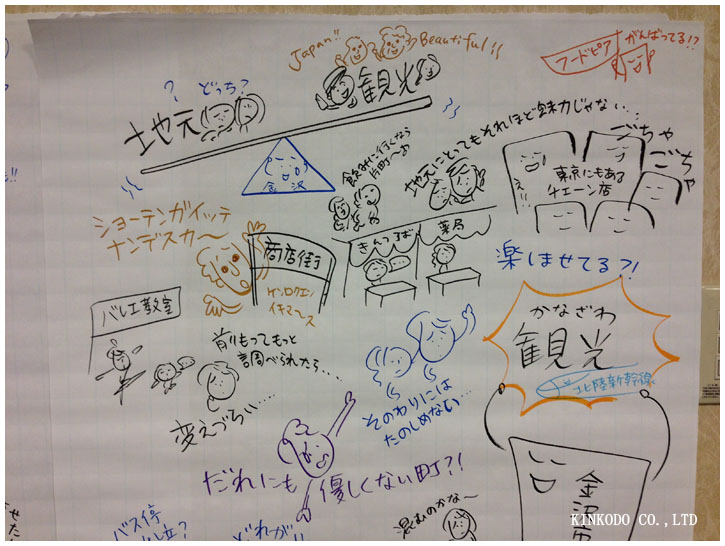 Japan!!
Beautiful!!
フードピア
がんばってる!?
?
どっち?
地元
観光
金沢
飲みに行くなら
片町〜♪
地元にとってもそれほど魅力じゃない…
ごちゃ
ごちゃ
東京にもある
チェーン店
えー!
ショーテンガイッテ
ナンデスカ〜
商店街
ケンロクエン
イキマース
きんつば
薬局
楽しませてる?!
かなざわ
観光
北陸新幹線
バレエ教室
前もってもっと
調べられたら、、
変えづらい……
そのわりには
たのしめない…
だれにも
優しくない町?!
金沢市
バス停
混むのかな〜
KINKODO CO.,LTD